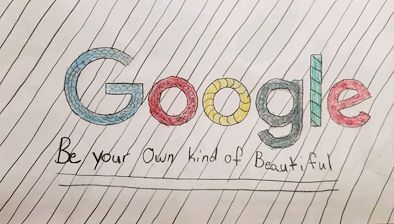 Google
Be your Own kind of Beautiful